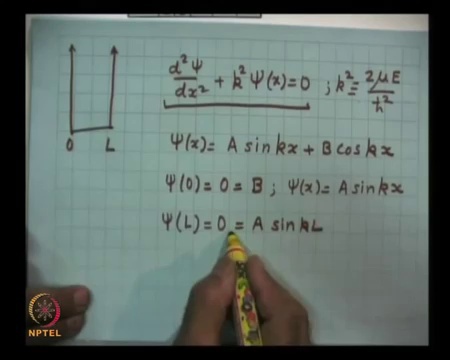 d²Ψ/dx² + k²Ψ(x) = 0 ; k² = 2μE/ħ²
Ψ(x) = A sin kx + B cos kx
Ψ(0) = 0 = B ; Ψ(x) = A sin kx
Ψ(L) = 0 = A sin kL
0 L
NPTEL